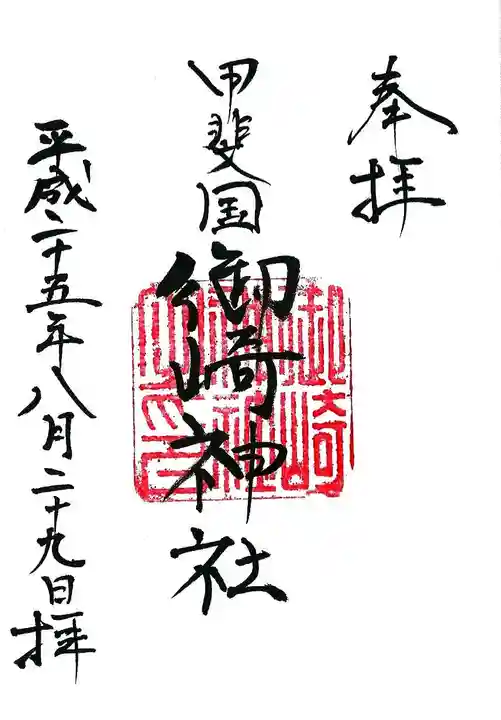 奉拝
甲斐国
御崎神社
平成二十五年八月二十九日拝